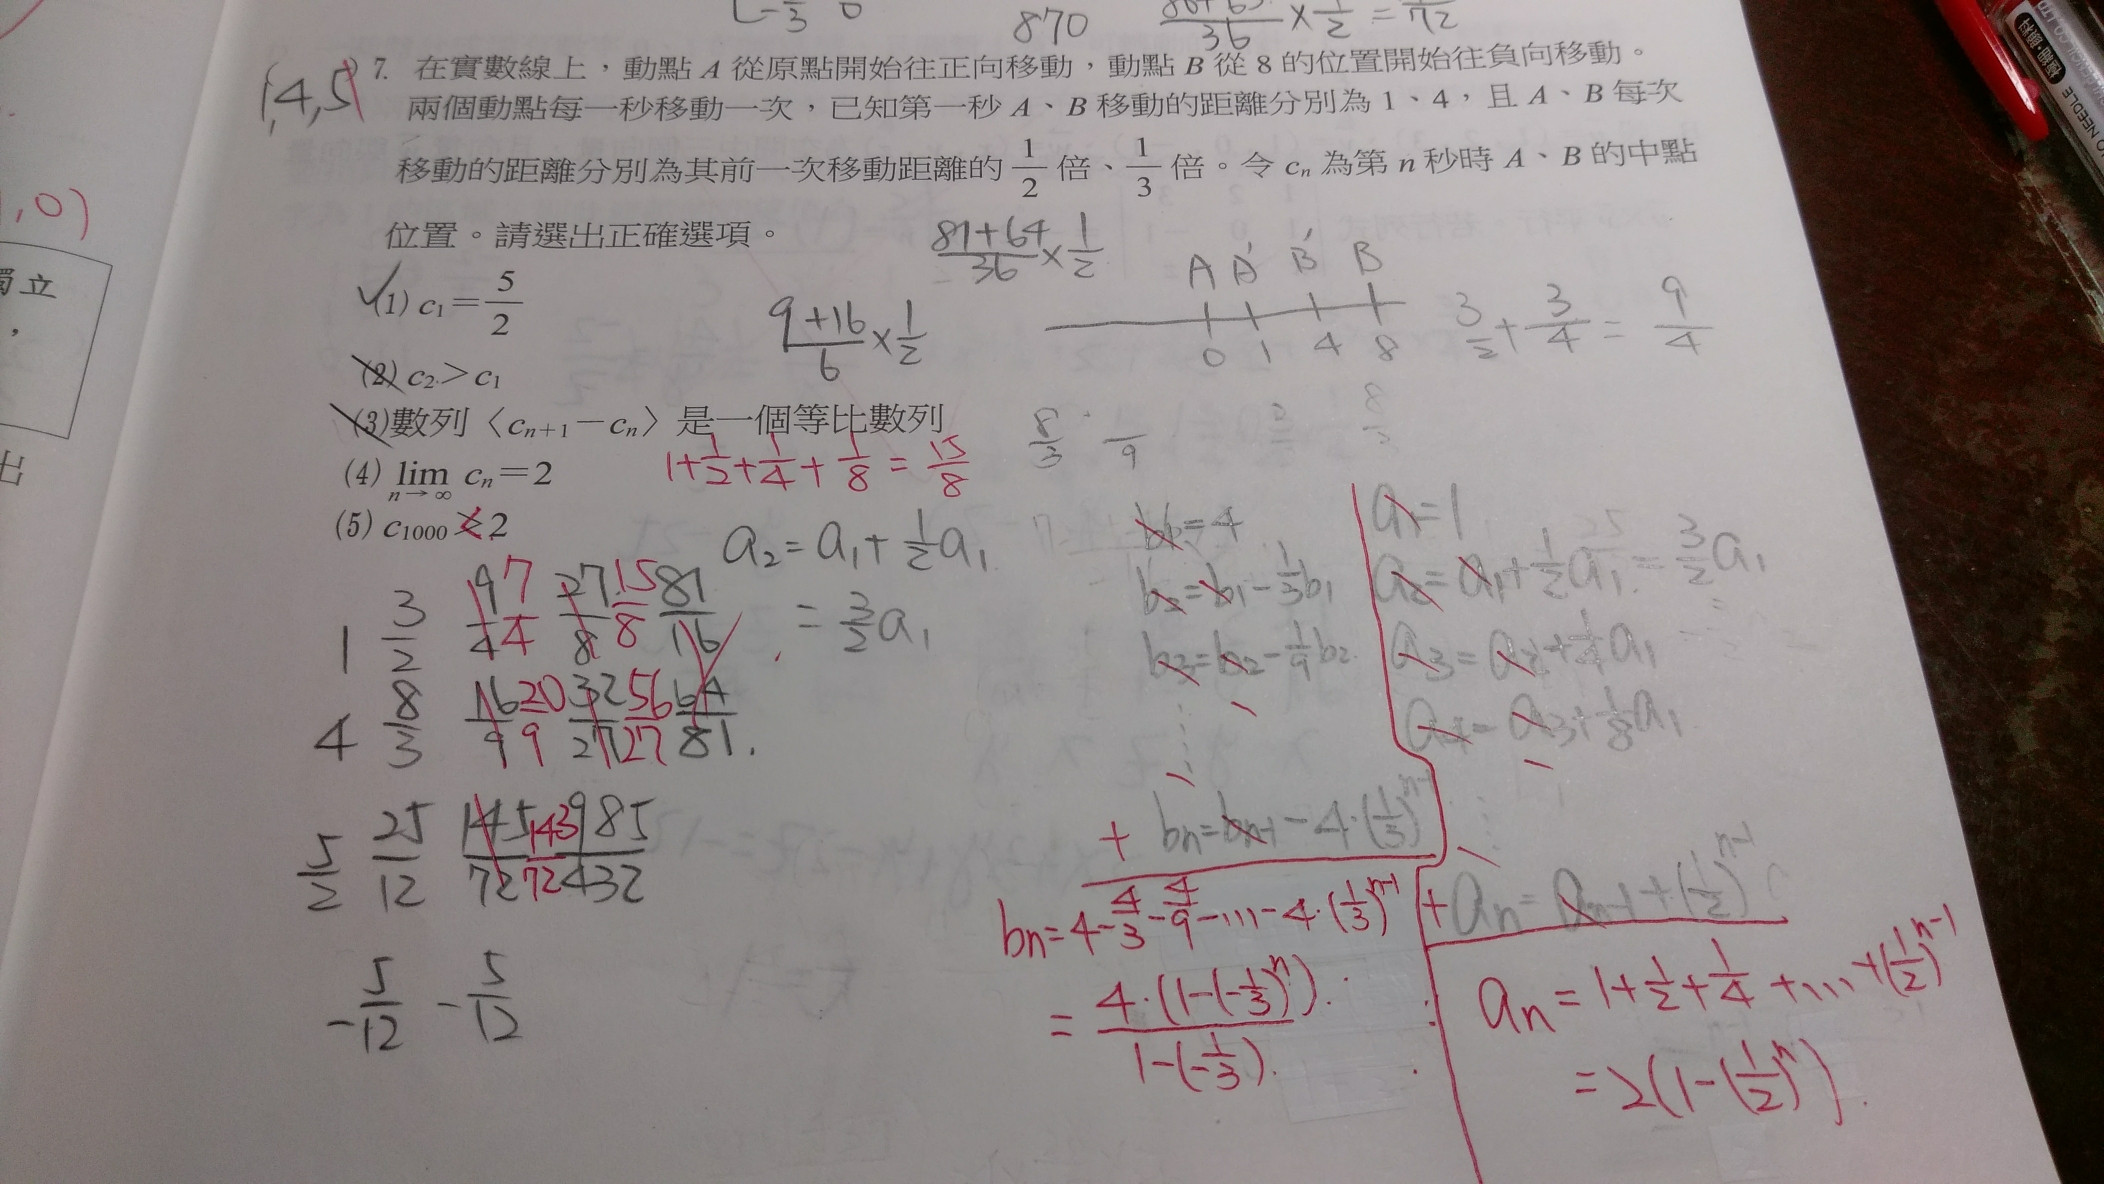 870
36 × 1/2 = 1/72
(1,4,5) 7. 在實數線上，動點 A 從原點開始往正向移動，動點 B 從 8 的位置開始往負向移動。
兩個動點每一秒移動一次，已知第一秒 A、B 移動的距離分別為 1、4，且 A、B 每次
移動的距離分別為其前一次移動距離的 1/2 倍、1/3 倍。令 cn 為第 n 秒時 A、B 的中點
位置。請選出正確選項。
(1) c1 = 5/2
(2) c2 > c1
(3) 數列〈cn+1 − cn〉是一個等比數列
(4) lim n→∞ cn = 2
(5) c1000 > 2
,0)
獨立
，
出
(81+64)/36 × 1/2
(9+16)/6 × 1/2
A A' B' B
0 1 4 8
3/2 + 3/4 = 9/4
1 + 1/2 + 1/4 + 1/8 = 15/8
8/3 /9
a2 = a1 + 1/2 a1
= 3/2 a1
1 3/2 9/4 7/4 27/8 15/8 81/16
4 8/3 16/9 20/9 32/27 56/27 64/81
5/2 25/12 145/72 143/72 985/432
-5/12 -5/12
b1 = 4
b2 = b1 - 1/3 b1
b3 = b2 - 1/9 b2
+ bn = bn-1 - 4·(1/3)^n-1
bn = 4 - 4/3 - 4/9 - ... - 4·(1/3)^n-1
= 4·(1-(-1/3)^n) / 1-(-1/3)
a1 = 1
a2 = a1 + 1/2 a1 = 3/2 a1
a3 = a2 + 1/4 a1
a4 = a3 + 1/8 a1
+ an = an-1 + (1/2)^n-1
an = 1 + 1/2 + 1/4 + ... + (1/2)^n-1
= 2(1-(1/2)^n)
NEEDLE